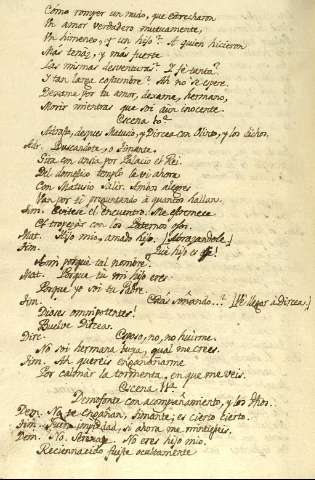 Como romper un nudo, que estrecharon
Un amor verdadero mutuamente,
Un himeneo, y un hijo? A quien hicieron
Mas tenaz, y mas fuerte
Las mismas desventuras? Y fé tanta?
Y tan larga costumbre? Ah no se espere.
Dexame por tu amor, dexame, hermano,
Morir mientras que soi aun inocente.
Escena 10ª
Adrasto, despues Matusio, y Dircea con Olinto, y los dichos.
Adr. Buscandote, o Timante,
Gira con ansia por Palacio el Rei.
Del domestico templo le vi ahora
Con Matusio salir. Ambos alegres
Van por ti preguntando à quantos hallan.
Tim. Evitese el encuentro. Me estremece
El tropezar con los Paternos ojos.
Mat. Hijo mio, amado hijo. [Abrazandole.]
Tim. Que hijo es ese!
A mi porqué tal nombre?
Mat. Porque tu mi hijo eres
Porque yo soi tu Padre.
Tim. Estás soñando...? [Al llegar à Dircea.]
Dioses omnipotentes!
Buelve Dircea.
Dirc. Esposo, no, no huirme.
No soi hermana tuya, qual me crees.
Tim. Ah quereis engañarme
Por calmar la tormenta, en que me veis.
Escena 11ª
Demofonte con acompañamiento, y los dhos.
Dem. No te engañan, Timante; es cierto cierto.
Tim. Fuera impiedad, si ahora me mintieseis.
Dem. No. No eres hijo mio.
Reciennacido fuiste ocultamente